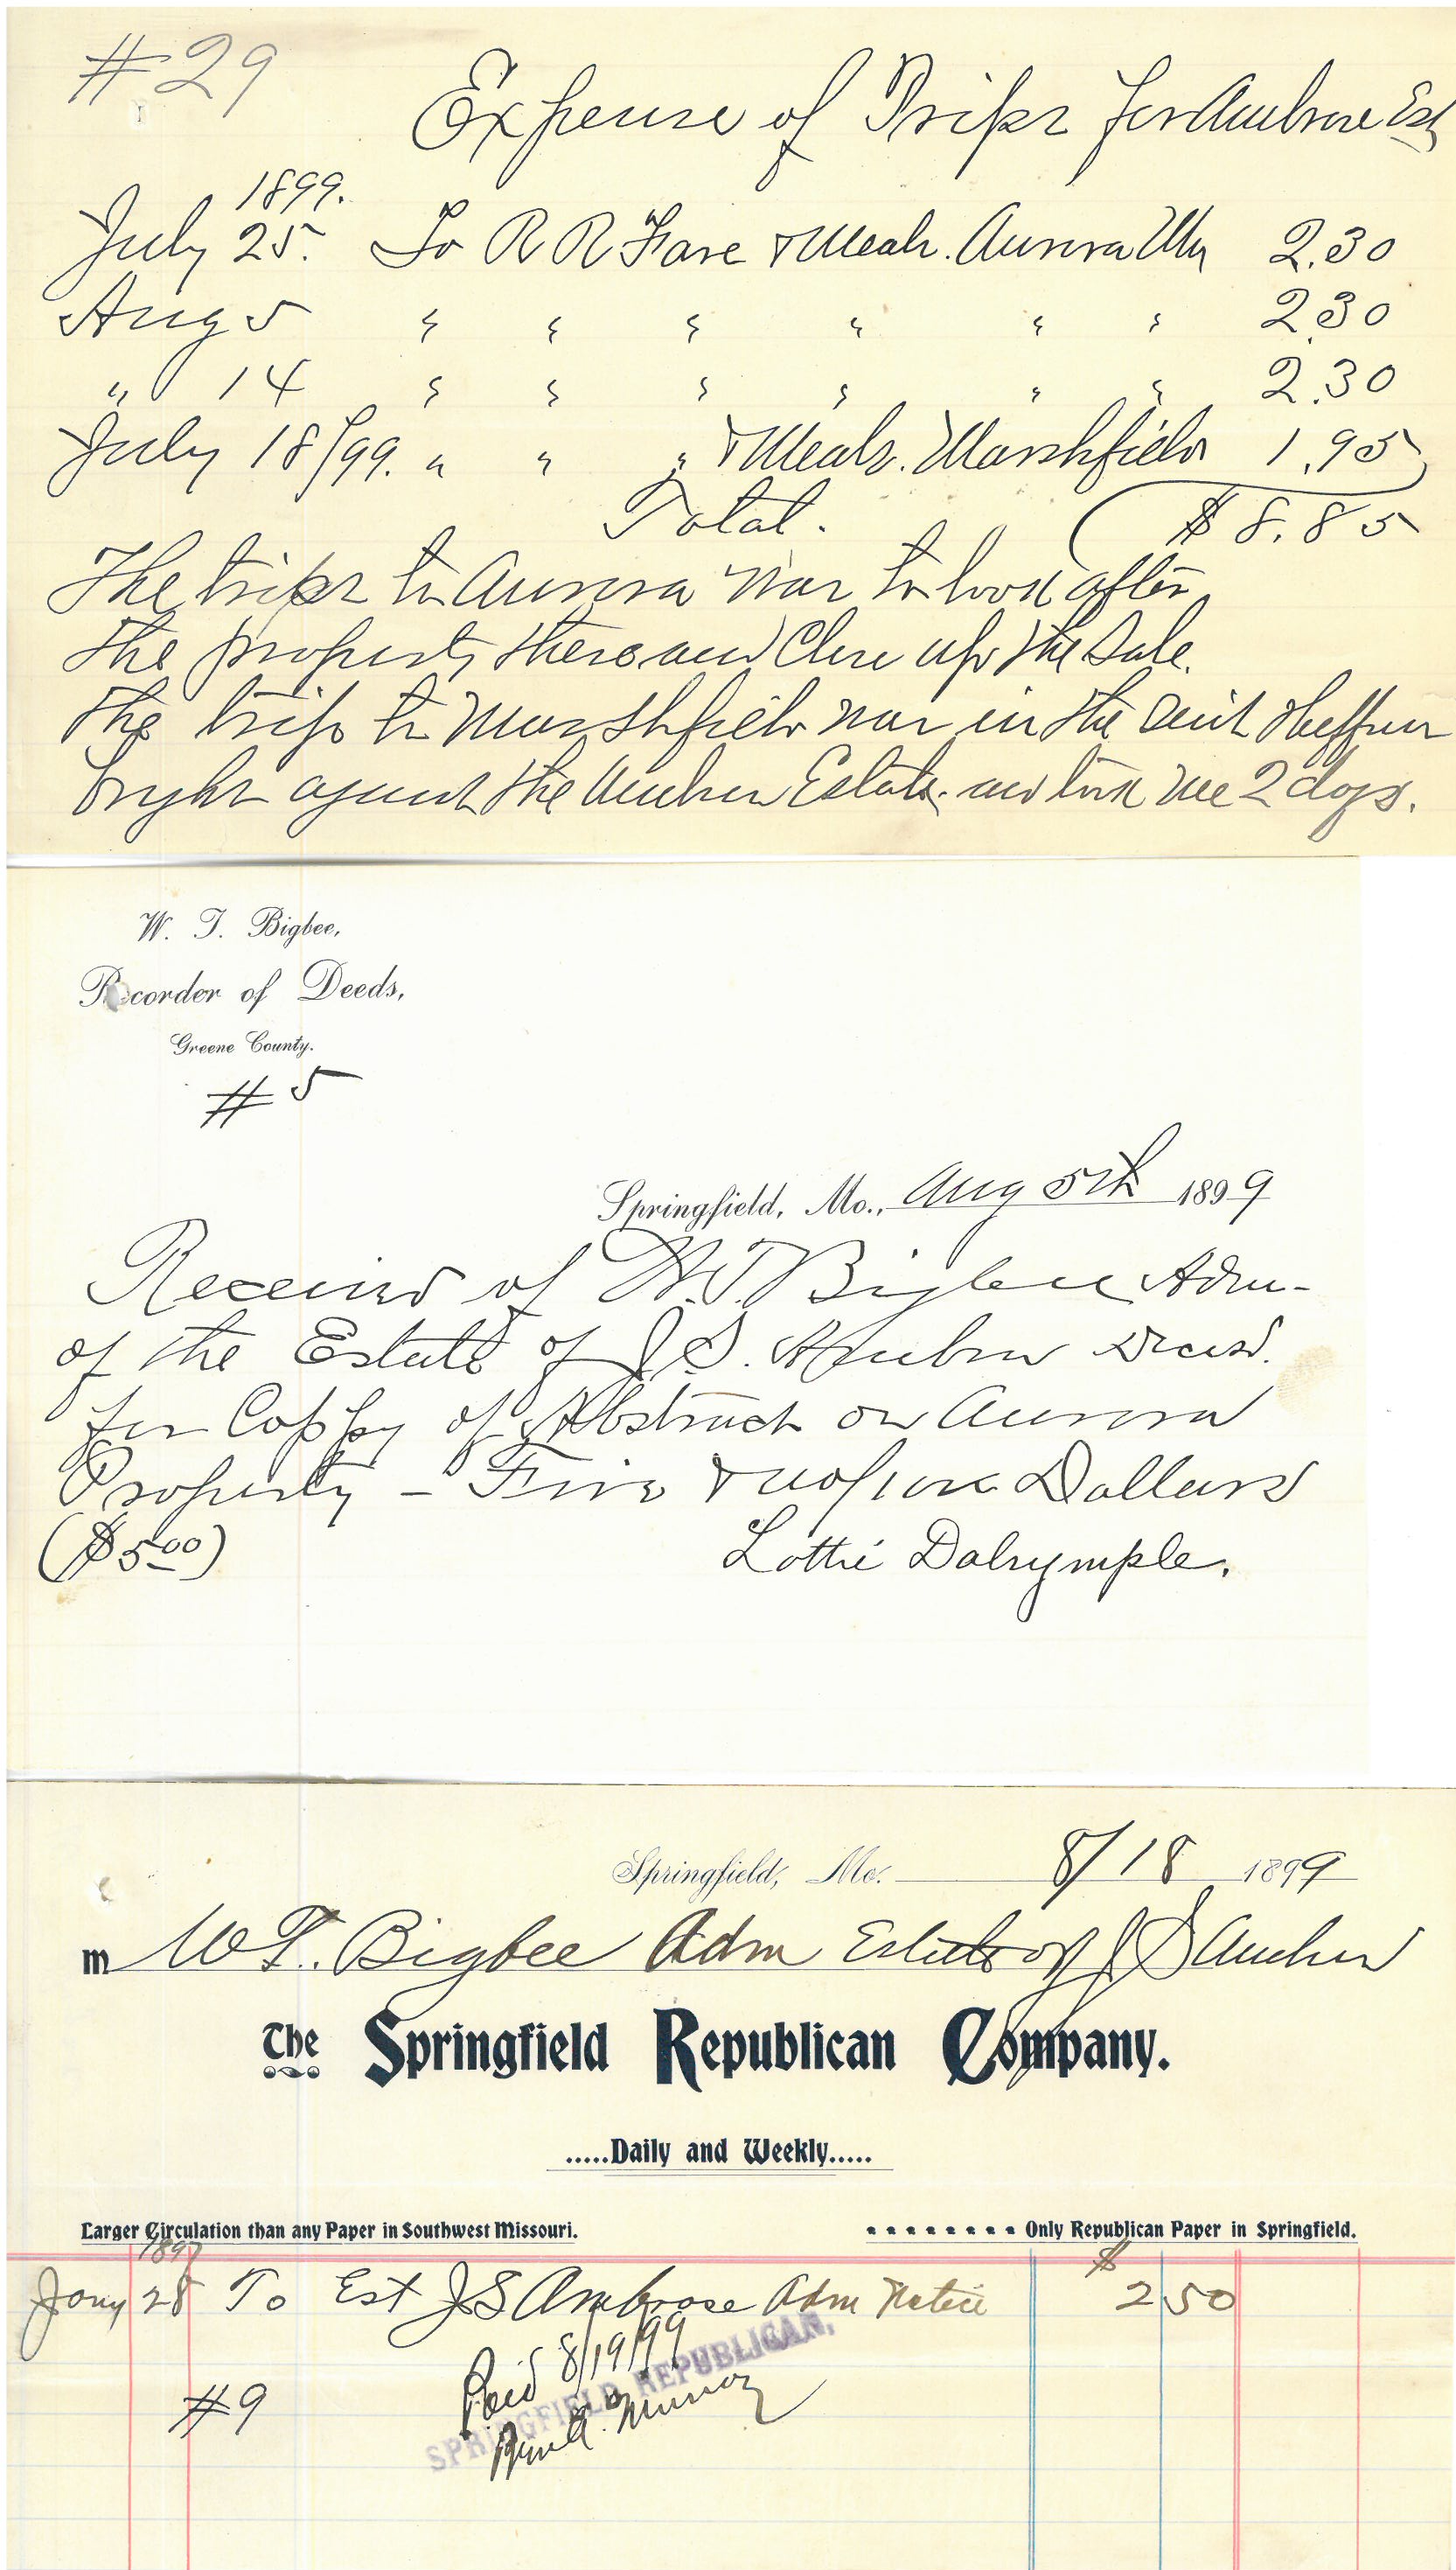 #29
Expense of Trips for Ambrose Est
1899.
July 25. To R R Fare & Meals. Aurora Mo 2.30
Aug 5 " " " " " " 2.30
" 14 " " " " " " 2.30
July 18/99. " " " & Meals. Marshfield 1.95
Total. $8.85
The trips to Aurora was to look after
the property there and Close up the Sale.
The trip to Marshfield was in the suit Heffner
brught against the Ambrose Estate. and took me 2 days.
W. T. Bigbee,
Recorder of Deeds,
Greene County.
#5
Springfield, Mo., Aug 5th 1899
Received of W.T. Bigbee Adm-
of the Estate of J.S. Ambrose Decsd.
for Coppy of Abstract on Aurora
Property - Five & no/100 Dollars
($5.00)
Lottie Dalrymple.
Springfield, Mo. 8/18 1899
m W T. Bigbee Adm Estate of J S Ambrose
The Springfield Republican Company.
.....Daily and Weekly.....
Larger Circulation than any Paper in Southwest Missouri. ........ Only Republican Paper in Springfield.
1897 $
Jany 28 To Est J S Ambrose Adm Notice 2 50
Paid 8/19/99
SPRINGFIELD REPUBLICAN,
#9
Murray